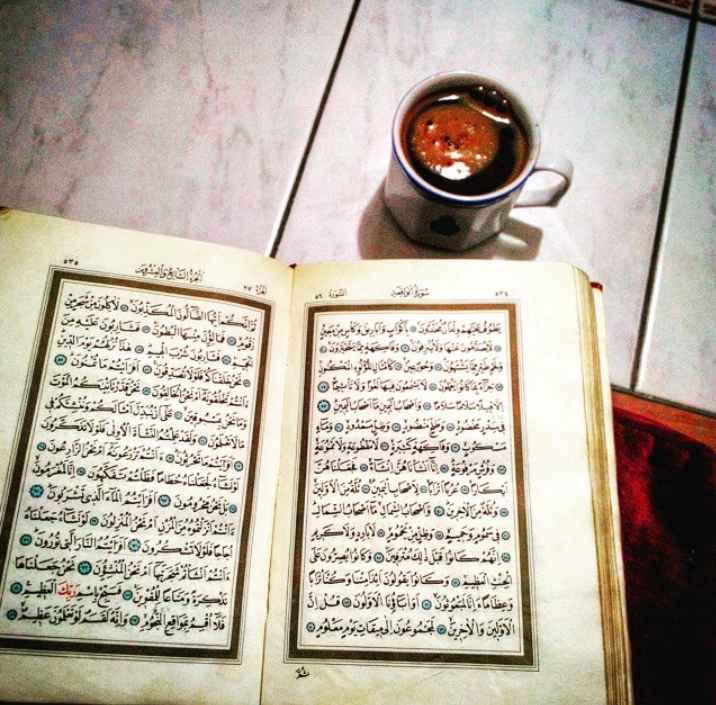 ٥٣٤
سُورَةُ الْوَاقِعَةِ
السُّورَة ٥٦
يَطُوفُ عَلَيْهِمْ وِلْدَانٌ مُخَلَّدُونَ ۝ بِأَكْوَابٍ وَأَبَارِيقَ وَكَأْسٍ مِنْ مَعِينٍ
لَا يُصَدَّعُونَ عَنْهَا وَلَا يُنْزِفُونَ ۝ وَفَاكِهَةٍ مِمَّا يَتَخَيَّرُونَ ۝
وَلَحْمِ طَيْرٍ مِمَّا يَشْتَهُونَ ۝ وَحُورٌ عِينٌ ۝ كَأَمْثَالِ اللُّؤْلُؤِ الْمَكْنُونِ
۝ جَزَاءً بِمَا كَانُوا يَعْمَلُونَ ۝ لَا يَسْمَعُونَ فِيهَا لَغْوًا وَلَا تَأْثِيمًا ۝
إِلَّا قِيلًا سَلَامًا سَلَامًا ۝ وَأَصْحَابُ الْيَمِينِ مَا أَصْحَابُ الْيَمِينِ ۝
فِي سِدْرٍ مَخْضُودٍ ۝ وَطَلْحٍ مَنْضُودٍ ۝ وَظِلٍّ مَمْدُودٍ ۝ وَمَاءٍ
مَسْكُوبٍ ۝ وَفَاكِهَةٍ كَثِيرَةٍ ۝ لَا مَقْطُوعَةٍ وَلَا مَمْنُوعَةٍ
۝ وَفُرُشٍ مَرْفُوعَةٍ ۝ إِنَّا أَنْشَأْنَاهُنَّ إِنْشَاءً ۝ فَجَعَلْنَاهُنَّ
أَبْكَارًا ۝ عُرُبًا أَتْرَابًا ۝ لِأَصْحَابِ الْيَمِينِ ۝ ثُلَّةٌ مِنَ الْأَوَّلِينَ
۝ وَثُلَّةٌ مِنَ الْآخِرِينَ ۝ وَأَصْحَابُ الشِّمَالِ مَا أَصْحَابُ الشِّمَالِ
۝ فِي سَمُومٍ وَحَمِيمٍ ۝ وَظِلٍّ مِنْ يَحْمُومٍ ۝ لَا بَارِدٍ وَلَا كَرِيمٍ
۝ إِنَّهُمْ كَانُوا قَبْلَ ذَلِكَ مُتْرَفِينَ ۝ وَكَانُوا يُصِرُّونَ عَلَى
الْحِنْثِ الْعَظِيمِ ۝ وَكَانُوا يَقُولُونَ أَئِذَا مِتْنَا وَكُنَّا تُرَابًا
وَعِظَامًا ءَإِنَّا لَمَبْعُوثُونَ ۝ أَوَآبَاؤُنَا الْأَوَّلُونَ ۝ قُلْ إِنَّ
الْأَوَّلِينَ وَالْآخِرِينَ ۝ لَمَجْمُوعُونَ إِلَى مِيقَاتِ يَوْمٍ مَعْلُومٍ ۝
الْجُزْء ٢٧
الْجُزْءُ السَّابِعُ وَالْعِشْرُونَ
٥٣٥
ثُمَّ إِنَّكُمْ أَيُّهَا الضَّالُّونَ الْمُكَذِّبُونَ ۝ لَآكِلُونَ مِنْ شَجَرٍ مِنْ
زَقُّومٍ ۝ فَمَالِئُونَ مِنْهَا الْبُطُونَ ۝ فَشَارِبُونَ عَلَيْهِ مِنَ
الْحَمِيمِ ۝ فَشَارِبُونَ شُرْبَ الْهِيمِ ۝ هَذَا نُزُلُهُمْ يَوْمَ الدِّينِ
۝ نَحْنُ خَلَقْنَاكُمْ فَلَوْلَا تُصَدِّقُونَ ۝ أَفَرَأَيْتُمْ مَا تُمْنُونَ ۝
ءَأَنْتُمْ تَخْلُقُونَهُ أَمْ نَحْنُ الْخَالِقُونَ ۝ نَحْنُ قَدَّرْنَا بَيْنَكُمُ الْمَوْتَ
وَمَا نَحْنُ بِمَسْبُوقِينَ ۝ عَلَى أَنْ نُبَدِّلَ أَمْثَالَكُمْ وَنُنْشِئَكُمْ فِي
مَا لَا تَعْلَمُونَ ۝ وَلَقَدْ عَلِمْتُمُ النَّشْأَةَ الْأُولَى فَلَوْلَا تَذَكَّرُونَ
۝ أَفَرَأَيْتُمْ مَا تَحْرُثُونَ ۝ ءَأَنْتُمْ تَزْرَعُونَهُ أَمْ نَحْنُ الزَّارِعُونَ ۝
لَوْ نَشَاءُ لَجَعَلْنَاهُ حُطَامًا فَظَلْتُمْ تَفَكَّهُونَ ۝ إِنَّا لَمُغْرَمُونَ
۝ بَلْ نَحْنُ مَحْرُومُونَ ۝ أَفَرَأَيْتُمُ الْمَاءَ الَّذِي تَشْرَبُونَ ۝
ءَأَنْتُمْ أَنْزَلْتُمُوهُ مِنَ الْمُزْنِ أَمْ نَحْنُ الْمُنْزِلُونَ ۝ لَوْ نَشَاءُ جَعَلْنَاهُ
أُجَاجًا فَلَوْلَا تَشْكُرُونَ ۝ أَفَرَأَيْتُمُ النَّارَ الَّتِي تُورُونَ ۝
ءَأَنْتُمْ أَنْشَأْتُمْ شَجَرَتَهَا أَمْ نَحْنُ الْمُنْشِئُونَ ۝ نَحْنُ جَعَلْنَاهَا
تَذْكِرَةً وَمَتَاعًا لِلْمُقْوِينَ ۝ فَسَبِّحْ بِاسْمِ رَبِّكَ الْعَظِيمِ ۝
فَلَا أُقْسِمُ بِمَوَاقِعِ النُّجُومِ ۝ وَإِنَّهُ لَقَسَمٌ لَوْ تَعْلَمُونَ عَظِيمٌ ۝